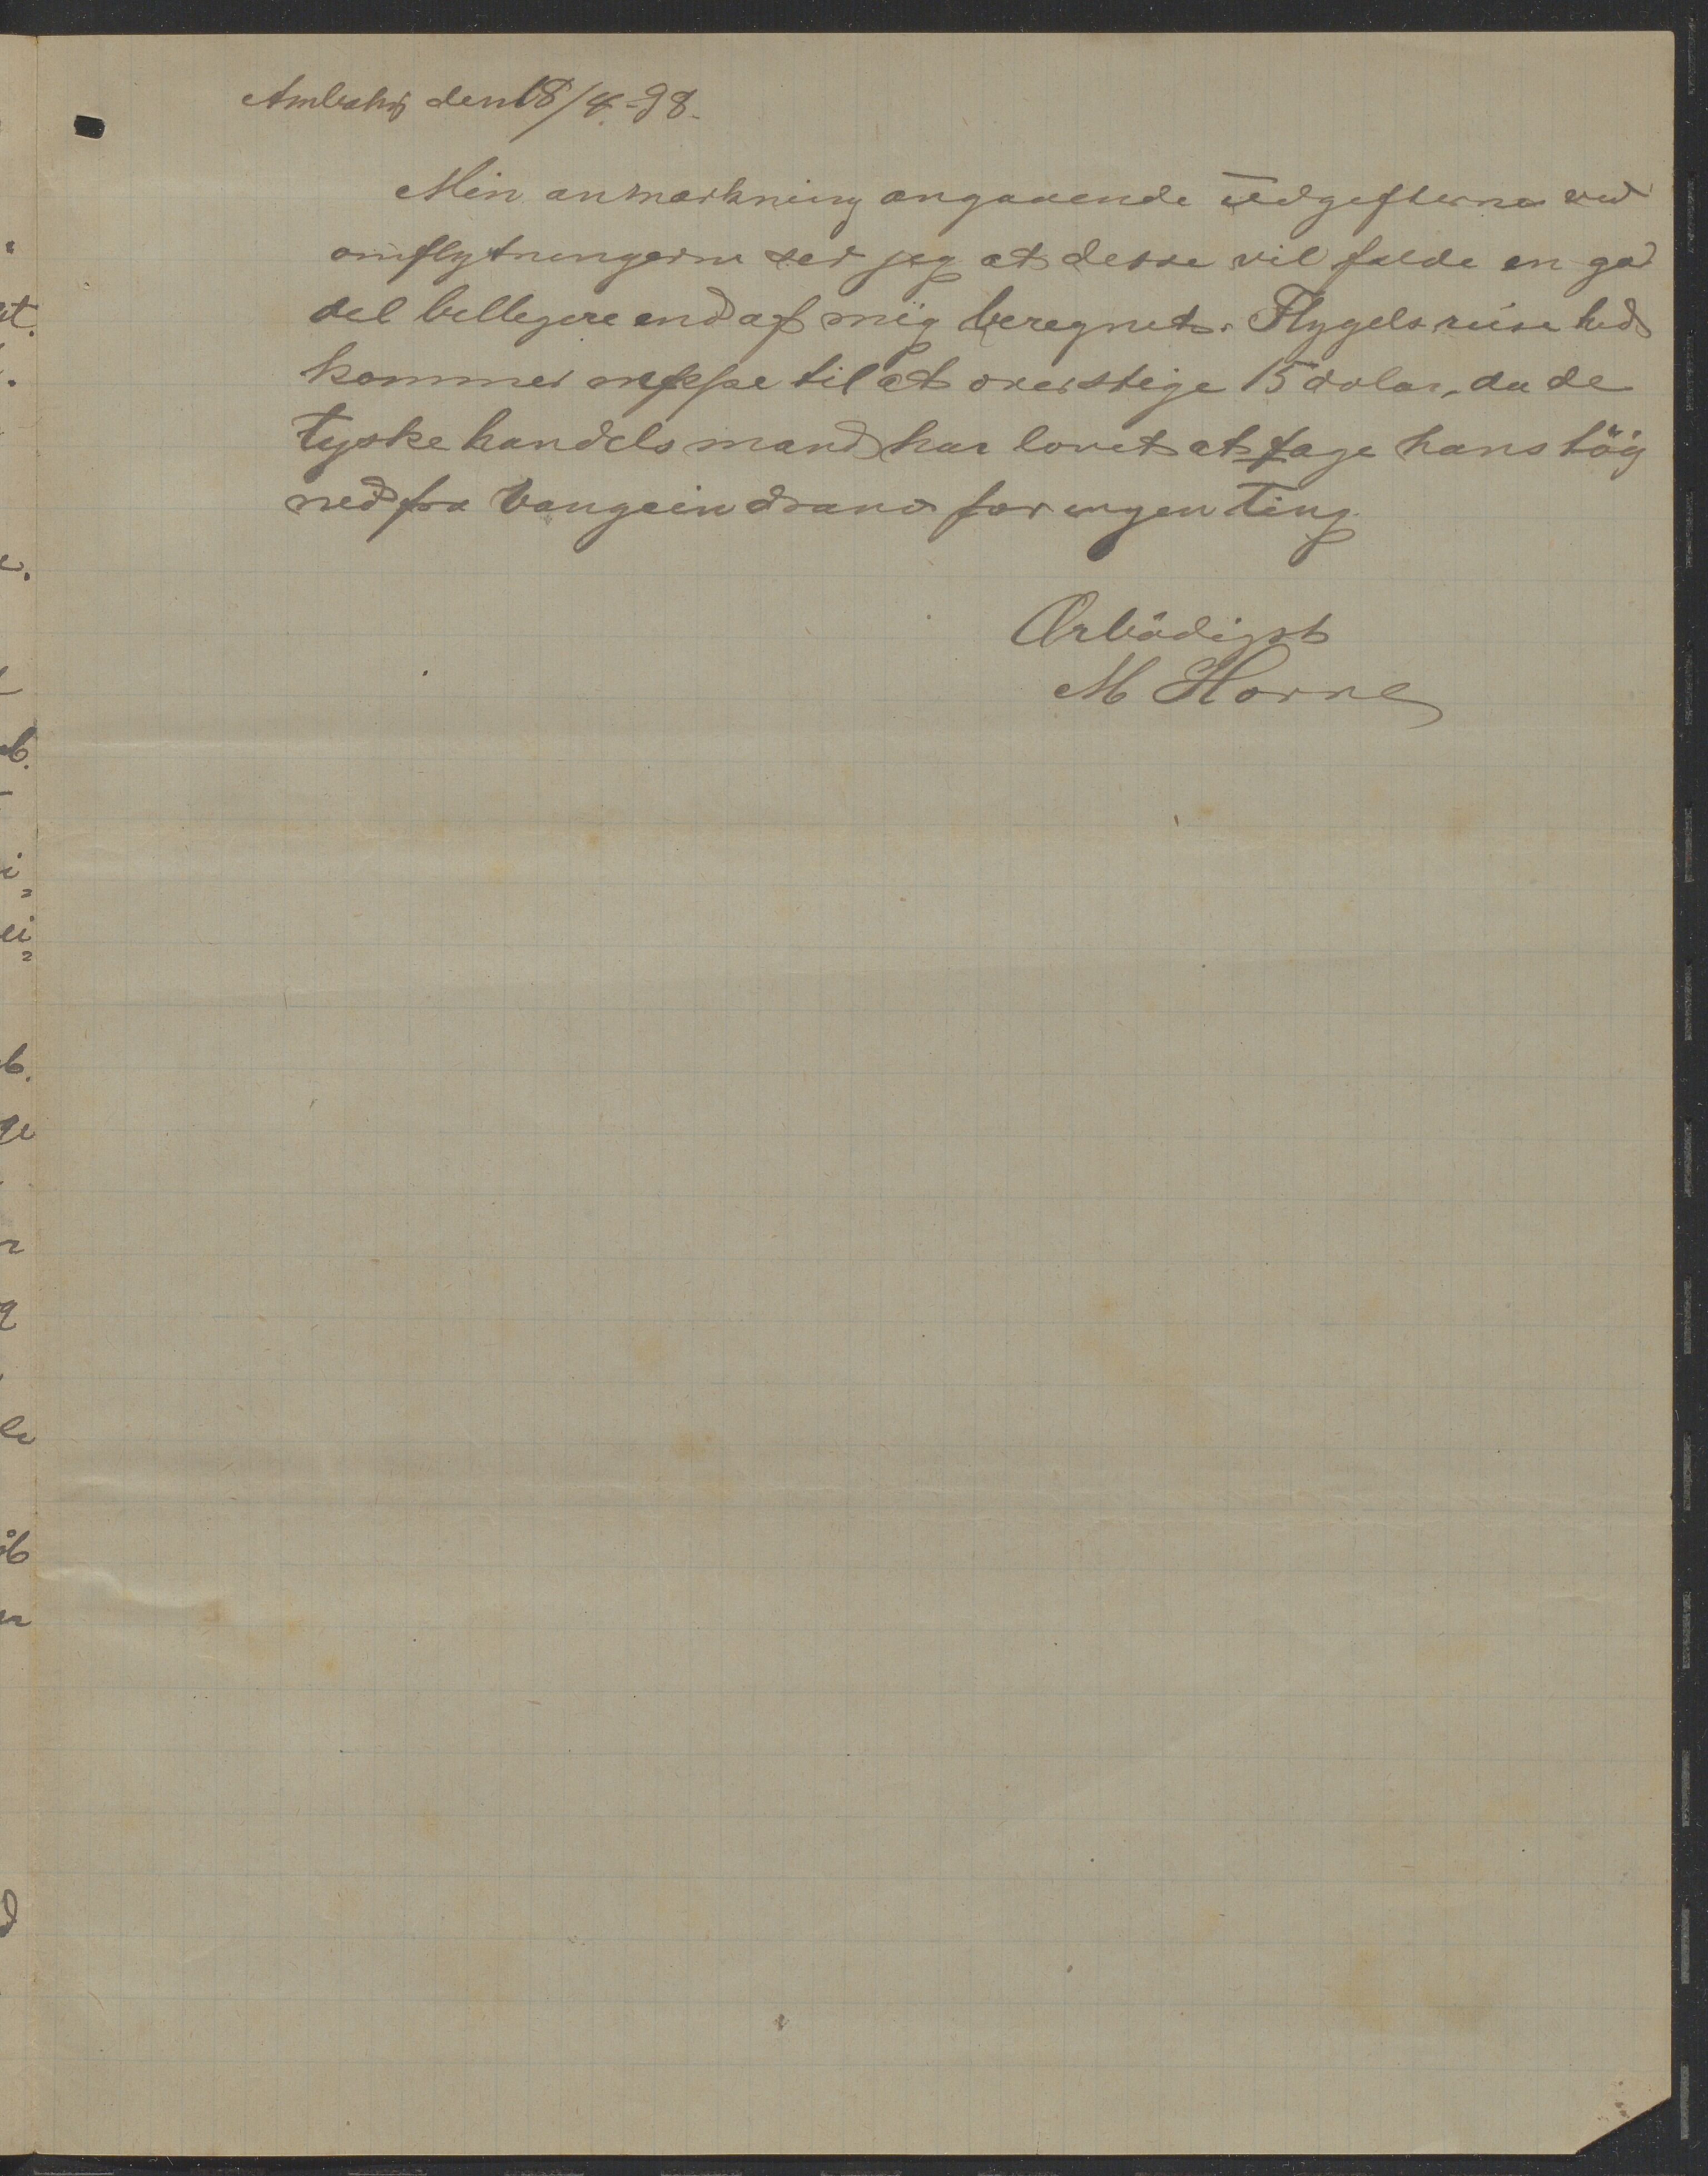 den 18/4.-98.
Min anmærkning angaaende udgifterne ved
omflytningerne ser jeg at desse vil falde en god
del bellegere end af mig beregnet. Flygels reise hid
kommer neppe til at overstige 15 dolar, da de
tyske handelsmand har lovet at tage hans töig
ned fra Vangaindrano for ingen Ting.
Ærbödigst
M Horne